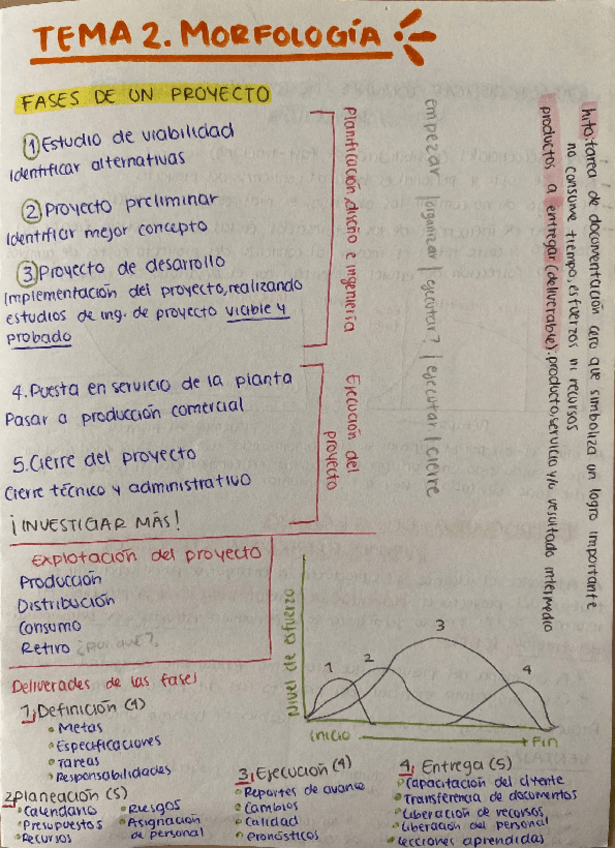 TEMA 2. MORFOLOGÍA
FASES DE UN PROYECTO
1 Estudio de viabilidad
Identificar alternativas
2 Proyecto preliminar
Identificar mejor concepto
3 Proyecto de desarrollo
Implementación del proyecto, realizando
estudios de ing. de proyecto viable y
probado
4. Puesta en servicio de la planta
Pasar a producción comercial
5. Cierre del proyecto
Cierre técnico y administrativo
¡INVESTIGAR MÁS!
Planificación, diseño e ingeniería
Ejecución del
proyecto
empezar | organizar | ejecutar? | ejecutar | cierre
hito: tarea de documentación cero que simboliza un logro importante
no consume tiempo, esfuerzos ni recursos
producto a entregar (deliverable): producto, servicio y/o resultado intermedio
Explotación del proyecto
Producción
Distribución
Consumo
Retiro ¿por qué?
Nivel de esfuerzo
1
2
3
4
Inicio
Fin
Deliverades de las fases
1. Definición (4)
Metas
Especificaciones
Tareas
Responsabilidades
2. Planeación (5)
Calendario
Presupuestos
Recursos
Riesgos
Asignación
de personal
3. Ejecución (4)
Reportes de avance
Cambios
Calidad
Pronósticos
4. Entrega (5)
Capacitación del cliente
Transferencia de documentos
Liberación de recursos
Liberación del personal
Lecciones aprendidas